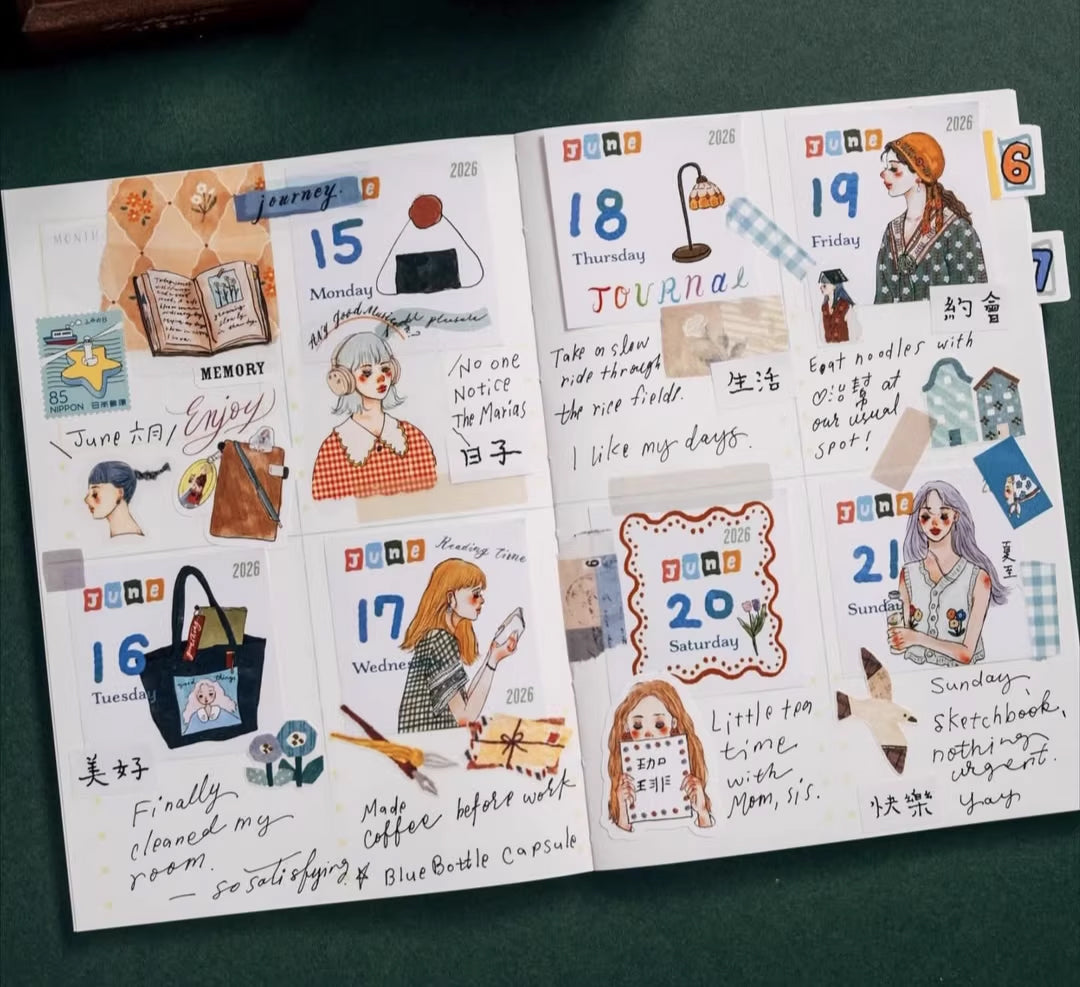 journey.
MONTH
85
NIPPON 日本郵便
MEMORY
Enjoy
June 六月
e
2026
15
Monday
My Good Music
No one
Notice
The Marias
日子
June
2026
16
Tuesday
good things
美好
Finally
cleaned my
room.
— so satisfying
June
Reading time
17
Wednes
2026
Made
coffee before work
Blue Bottle capsule
June
2026
18
Thursday
JOURNAL
Take a slow
ride through
the rice fields.
生活
I like my days.
June
2026
19
Friday
約會
Eat noodles with
at
our usual
spot!
2026
June
20
Saturday
咖
啡
Little tea
time
with
Mom, sis.
June
21
Sunday
夏至
Sunday,
sketchbook,
nothing
urgent.
yay
快樂
6
7